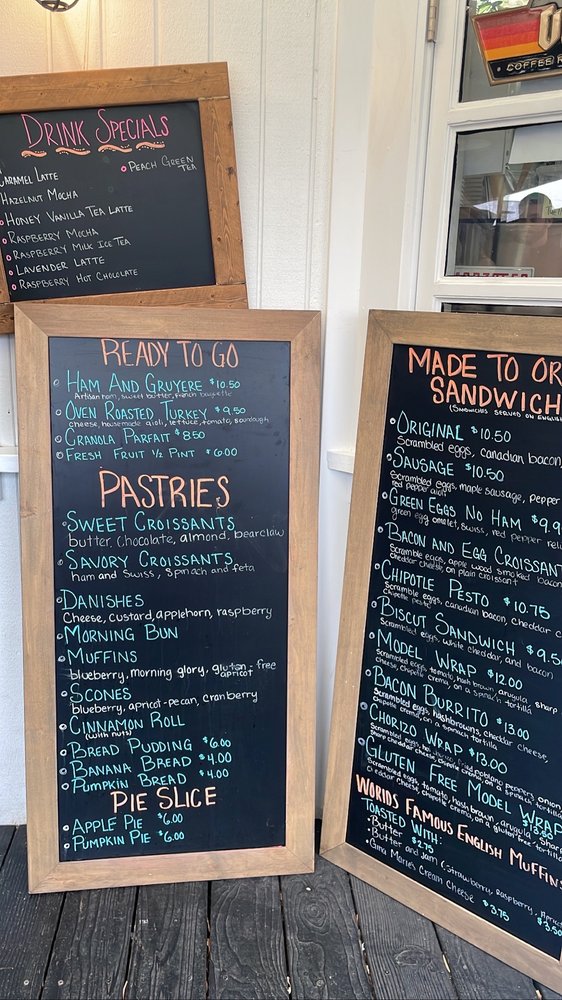 DRINK SPECIALS
CARAMEL LATTE
PEACH GREEN TEA
HAZELNUT MOCHA
HONEY VANILLA TEA LATTE
RASPBERRY MOCHA
RASPBERRY MILK ICE TEA
LAVENDER LATTE
RASPBERRY HOT CHOCOLATE
COFFEE
READY TO GO
HAM AND GRUYERE $10.50
Artisan ham, sweet butter, french baguette
OVEN ROASTED TURKEY $9.50
cheese, housemade aioli, lettuce, tomato, sourdough
GRANOLA PARFAIT $8.50
FRESH FRUIT ½ PINT $6.00
PASTRIES
SWEET CROISSANTS
butter, chocolate, almond, bearclaw
SAVORY CROISSANTS
ham and Swiss, Spinach and feta
DANISHES
Cheese, custard, applehorn, raspberry
MORNING BUN
MUFFINS
blueberry, morning glory, gluton-free
apricot
SCONES
blueberry, apricot-pecan, cranberry
CINNAMON ROLL
(with nuts)
BREAD PUDDING $6.00
BANANA BREAD $4.00
PUMPKIN BREAD $4.00
PIE SLICE
APPLE PIE $6.00
PUMPKIN PIE $6.00
MADE TO OR
SANDWICH
(SANDWICHES SERVED ON ENGLISH
ORIGINAL $10.50
Scrambled eggs, canadian bacon,
SAUSAGE $10.50
Scrambled eggs, maple sausage, pepper
red pepper aioli
GREEN EGGS NO HAM $9.9
green egg omelet, swiss, red pepper rel
BACON AND EGG CROISSANT
Scramble eggs, apple wood smoked bacon
cheddar cheese, on plain croissant
CHIPOTLE PESTO $10.75
Scramble eggs, canadian bacon, cheddar c
chipotle pesto
BISCUT SANDWICH $9.50
Scrambled eggs, white cheddar, and bacon
MODEL WRAP $12.00
Scrambled eggs, tomato, hash brown, arugula, sharp
cheese, chipotle crema, on a spinach tortilla
BACON BURRITO $13.00
Scrambled eggs, hashbrowns, cheddar cheese,
chipotle crema, on a spinach tortilla
CHORIZO WRAP $13.00
Scrambled eggs, poblano peppers, onion,
sharp cheddar cheese, chipotle crema, on a spinach tortilla
GLUTEN FREE MODEL WRAP
$13.50
Scrambled eggs, tomato, hash brown, arugula, Sharp
cheddar cheese, chipotle crema, on a gluten free tortilla
WORLDS FAMOUS ENGLISH MUFFINS
TOASTED WITH:
Butter $2.75
Butter and Jam (Strawberry, Raspberry, Apricot
$3.50
Gina Marie's Cream Cheese $3.75